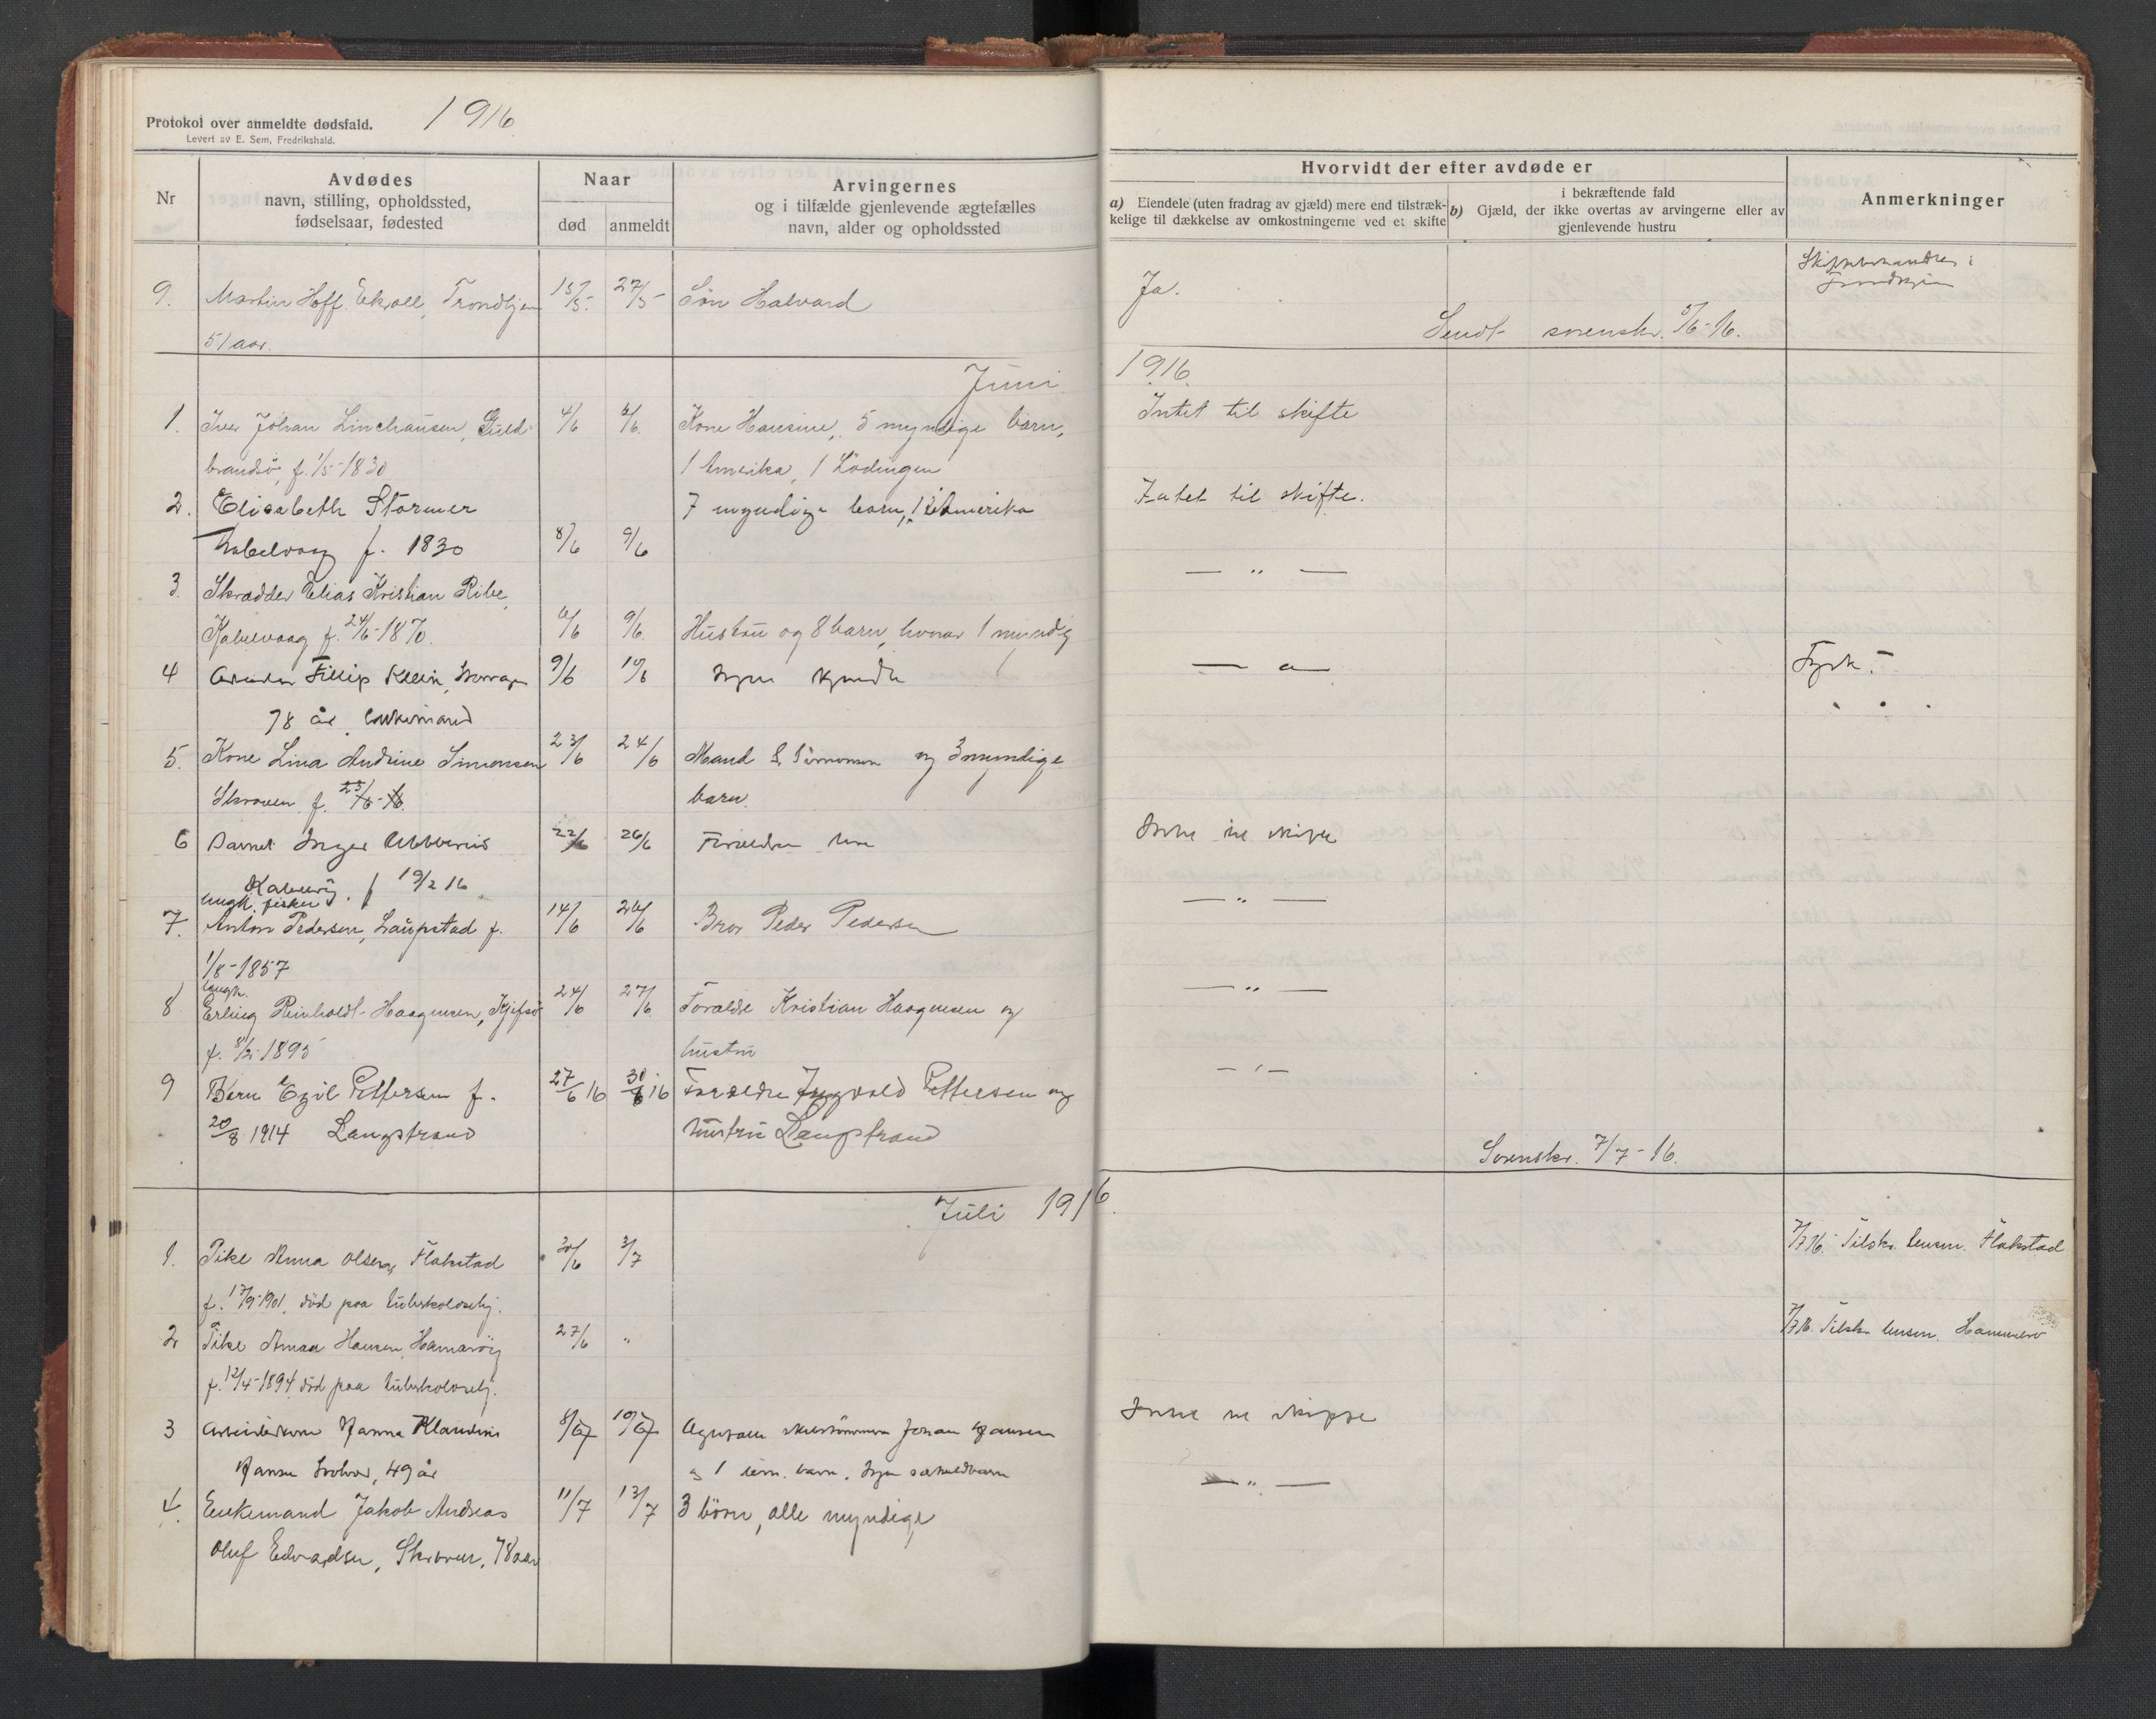 Protokol over anmeldte dødsfald. 1916
Levert av E. Sem, Fredrikshald.
Nr
Avdødes
navn, stilling, opholdssted,
fødselsaar, fødested
Naar
død anmeldt
Arvingernes
og i tilfælde gjenlevende ægtefælles
navn, alder og opholdssted
Hvorvidt der efter avdøde er
a) Eiendele (uten fradrag av gjæld) mere end tilstræk-
kelige til dækkelse av omkostningerne ved et skifte
i bekræftende fald
b) Gjæld, der ikke overtas av arvingerne eller av
gjenlevende hustru
Anmerkninger
9. Martin Hoff Ekroll, Trondhjem 15/5- 27/5- Søn Halvard Ja.
51 aar. Sendt sorenskr. 5/6-16.
Juni 1916.
1. Iver Johan Linchausen, Guld- 4/6 6/6. Kone Hansine, 5 myndige barn, Intet til skifte
brandsö, f. 1/5-1830 1 Amerika, 1 Lödingen
2. Elisabeth Störmer 7 myndige barn, 1 i Amerika Intet til skifte.
Kabelvaag f. 1830 8/6 9/6
3. Skrædder Elias Kristian Ribe, — " —
Kabelvaag f. 24/6-1870. 6/6 9/6. Hustru og 8 barn, hvorav 1 myndig
4 Fillip Klein, 9/6 10/6 Ingen kjendte — " — Tysk.
78 år, enkemand
5. Kone Lina Andrine Simonsen 23/6 24/6 Mand S. Simonsen og 3 myndige
Skroven f. 23/6-16. barn.
6 Barnet Inger 22/6 26/6 Forældre Intet til skifte
Kabelvåg. f 19/2 16
ungk. fisker
7. Anton Pedersen, Laupstad f. 14/6 26/6 Bror Peder Pedersen — " —
1/8-1857
ungk.
8 Erling Reinholdt Haagensen, 24/6 27/6. Forældre Kristian Haagensen og — " —
f. 8/2-1895 hustru
9 Barn Egil Pettersen f. 27/6 16 30/6 16 Forældre Ingvald Pettersen og — " —
20/8 1914 Langstrand hustru Langstrand
Sorenskr. 7/7-16.
Juli 1916.
1. Pike Anna Olsen, Flakstad 30/6 3/7 7/7 16. Tilskr. lensm. Flakstad
f. 17/9-1901, död paa tuberkulosehj.
2 Pike Anna Hansen, Hamaröy 27/6 " 7/7 16. Tilskr. lensm. Hammerö
f. 12/4-1894 död paa tuberkulosehj.
3 Arbeiderkone Hanna Klaudine 8/7 10/7 Johan Hansen Intet til skifte
Hansen Svolvær, 49 år og 1 barn. Ingen særkuldbarn
4. Enkemand Jakob Andreas 11/7 13/7 3 börn, alle myndige — " —
Oluf Edvardsen, Skroven, 78 aar